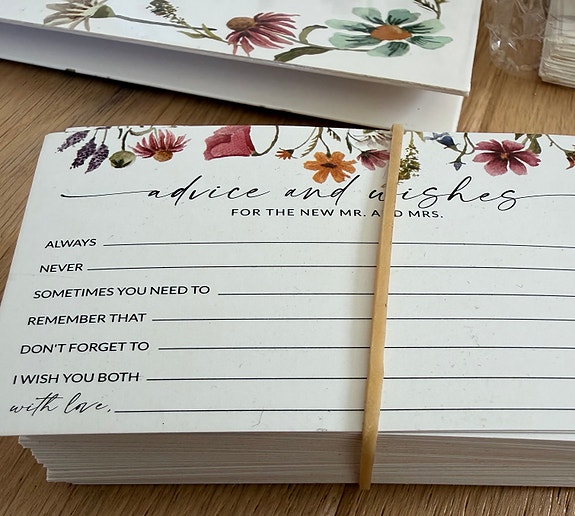 advice and wishes
FOR THE NEW MR. AND MRS.
ALWAYS
NEVER
SOMETIMES YOU NEED TO
REMEMBER THAT
DON'T FORGET TO
I WISH YOU BOTH
with love,